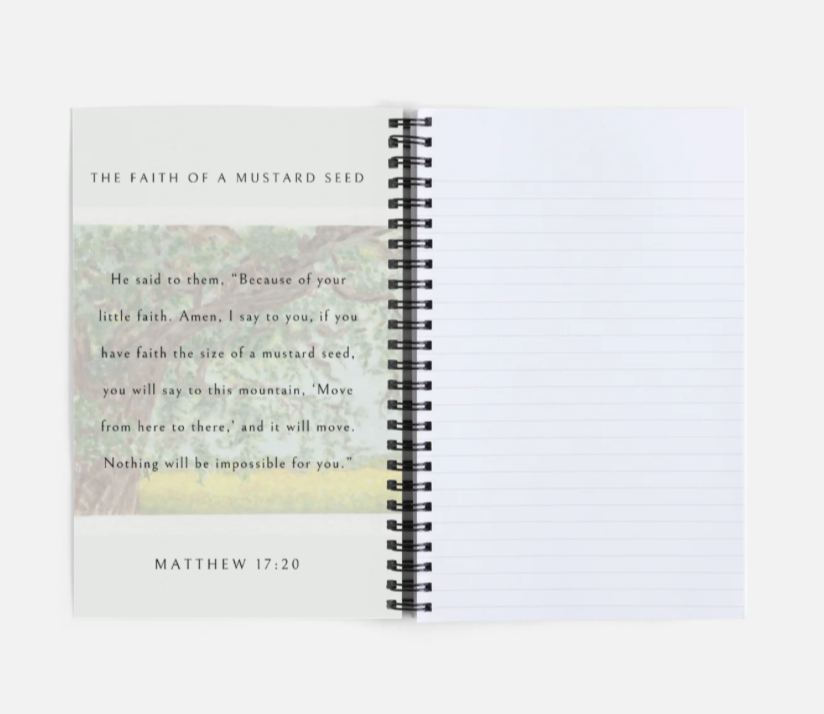 THE FAITH OF A MUSTARD SEED
He said to them, “Because of your
little faith. Amen, I say to you, if you
have faith the size of a mustard seed,
you will say to this mountain, ‘Move
from here to there,’ and it will move.
Nothing will be impossible for you.”
MATTHEW 17:20